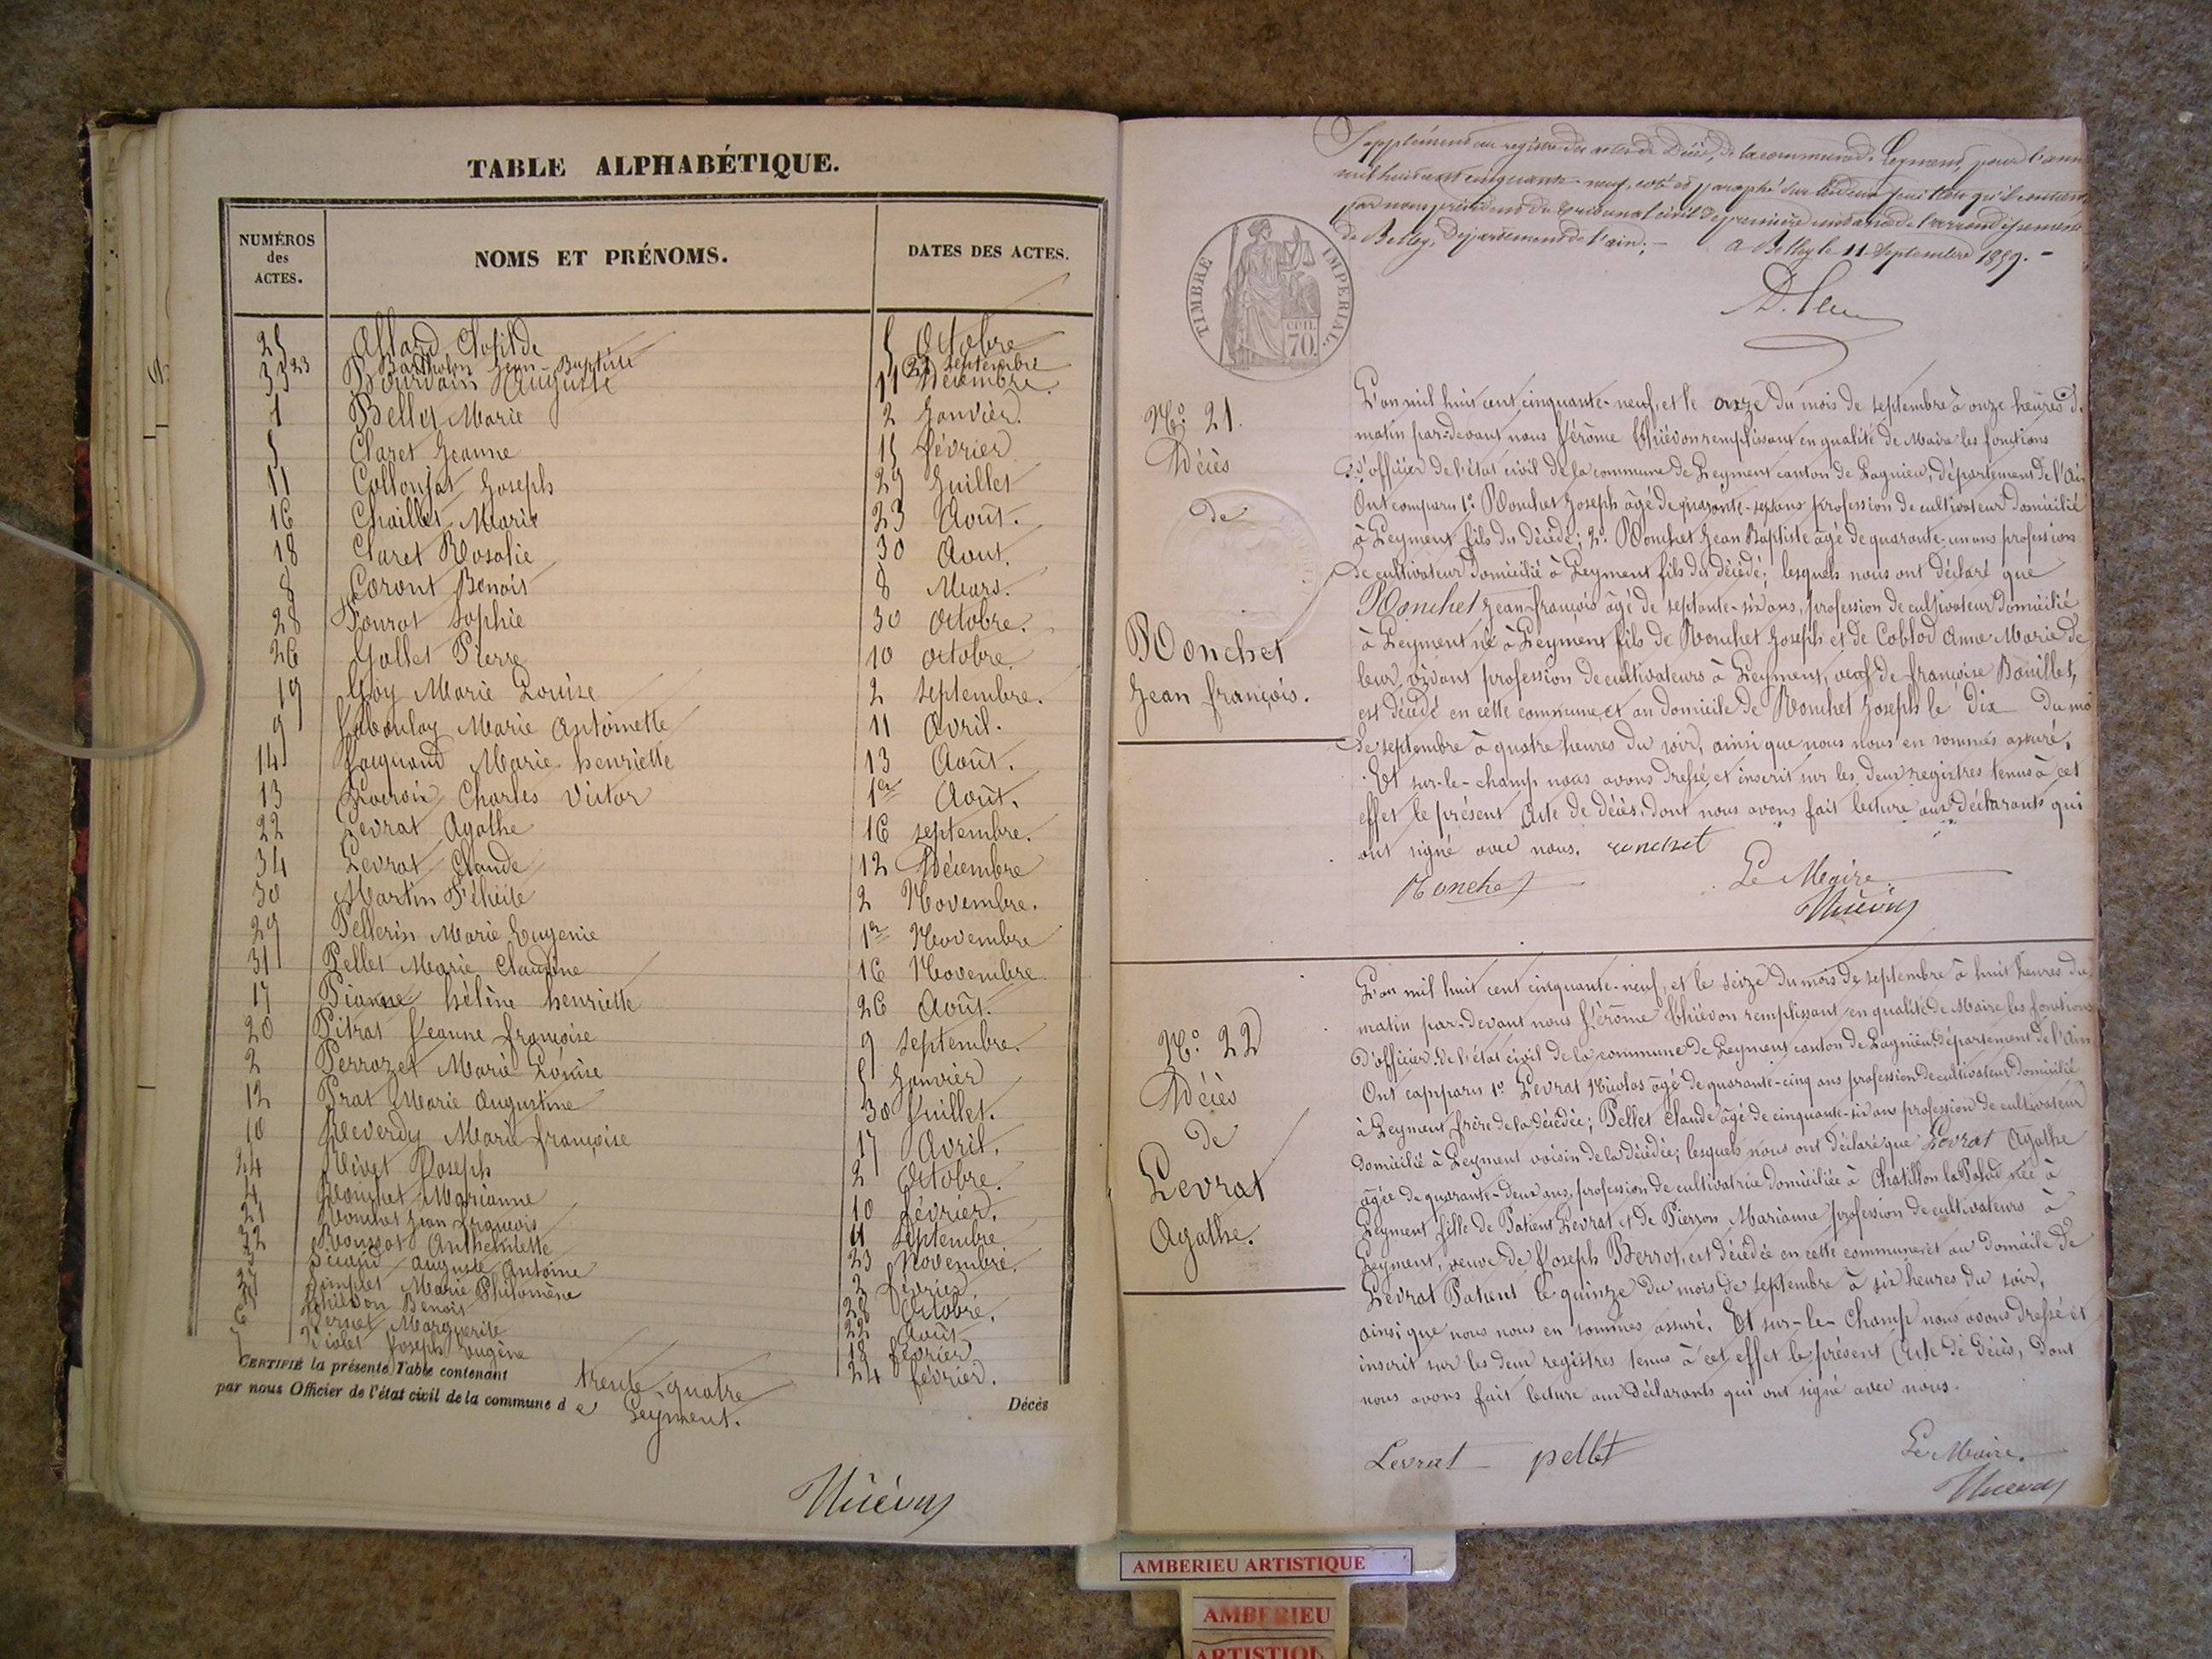 TABLE ALPHABÉTIQUE.
NUMÉROS des ACTES.
NOMS ET PRÉNOMS.
DATES DES ACTES.
25 Allard Clotilde 5 Octobre
23 Bartholon Jean-Baptiste 22 septembre
33 Bourdain Auguste 11 Décembre.
1 Belley Marie 2 Janvier.
5 Claret Jeanne 15 février
11 Collonjat Joseph 29 Juillet
16 Chaillet Marie 23 Août.
18 Claret Rosalie 30 Aout.
8 Coront Benoit 8 Mars.
28 Fourat Sophie 30 Octobre.
26 Gallet Pierre 10 octobre.
19 Goy Marie Louise 2 septembre.
9 Marie Antoinette 11 Avril.
14 Jacquand Marie henriette 13 Août.
13 Lacroix Charles Victor 1er Août.
22 Levrat Agathe 16 septembre.
34 Levrat Claude 12 Décembre
30 Martin Félicité 2 Novembre.
29 Pellerin Marie Eugenie 1er Novembre
31 Pellet Marie Claudine 16 Novembre
17 hélène henriette 26 Août.
20 Pitrat Jeanne françoise 9 septembre.
2 Perrozet Marie Louise 5 Janvier
12 Prat Marie Augustine 30 Juillet.
10 Reverdy Marie françoise 17 Avril.
24 Rivet Joseph 2 Octobre.
4 Ronchet Marianne 10 février.
21 Ronchet Jean françois 11 septembre
32 Roussot Anthelmette 23 Novembre.
3 Auguste Antoine 2 février
27 Marie Philomène 28 Octobre.
Thiévon Benoit 22 Août
6 Vernet Marguerite 18 février
7 Violet Joseph Eugène 24 février.
CERTIFIÉ la présente Table contenant trente quatre Décès
par nous Officier de l'état civil de la commune de Leyment.
Thiévon
Supplément au registre des actes de Décès, de la commune de Leyment, pour l'ann
mil huit cent cinquante-neuf, coté et paraphé sur les deux feuillets qu'il contient
par nous président du tribunal civil de première instance de l'arrondissement
de Belley, département de l'ain. - A Belley le 11 Septembre 1859. -
TIMBRE IMPERIAL
CEN. 70.
No. 21.
Décès
de
Ronchet
Jean françois.
L'an mil huit cent cinquante-neuf, et le onze du mois de septembre à onze heures d
matin par-devant nous Jérôme Thiévon remplissant en qualité de Maire les fonctions
d'officier de l'état civil de la commune de Leyment canton de Lagnieu, département de l'Ain
Ont comparu 1o. Ronchet Joseph âgé de quarante-sept ans profession de cultivateur domicilié
à Leyment fils du décédé; 2o. Ronchet Jean Baptiste âgé de quarante-un ans profession
de cultivateur domicilié à Leyment fils du décédé; lesquels nous ont déclaré que
Ronchet Jean-françois âgé de septante-six ans, profession de cultivateur domicilié
à Leyment né à Leyment fils de Ronchet Joseph et de Coblod Anne Marie de
leur vivant profession de cultivateurs à Leyment, veuf de françoise Bouillet,
est décédé en cette commune et au domicile de Ronchet Joseph le Dix du mo
de septembre à quatre heures du soir, ainsi que nous nous en sommes assuré.
Et sur-le-champ nous avons dressé et inscrit sur les deux registres tenus à cet
effet le présent Acte de décès, dont nous avons fait lecture aux déclarants qui
ont signé avec nous. ronchet
Ronchet Le Maire.
Thiévon
No. 22
Décès
de
Levrat
Agathe.
L'an mil huit cent cinquante-neuf, et le seize du mois de septembre à huit heures du
matin par-devant nous Jérôme Thiévon remplissant en qualité de Maire les fonctions
d'officier de l'état civil de la commune de Leyment canton de Lagnieu département de l'Ain
Ont capparu 1o. Levrat Nicolas âgé de quarante-cinq ans profession de cultivateur domicilié
à Leyment frère de la décédée; Pellet Claude âgé de cinquante-six ans profession de cultivateur
domicilié à Leyment voisin de la décédée; lesquels nous ont déclaré que Levrat Agathe
âgée de quarante-deux ans, profession de cultivatrice domiciliée à Châtillon la Palud née à
Leyment fille de Patient Levrat et de Pierron Marianne profession de cultivateurs à
Leyment, veuve de Joseph Berrot, est décédée en cette commune et au domicile de
Levrat Patient le quinze du mois de septembre à six heures du soir,
ainsi que nous nous en sommes assuré. Et sur-le-Champ nous avons dressé et
inscrit sur les deux registres tenus à cet effet le présent Acte de décès, dont
nous avons fait lecture aux déclarants qui ont signé avec nous.
Levrat pellet Le Maire.
Thiévon
AMBERIEU ARTISTIQUE
AMBERIEU
ARTISTIQU